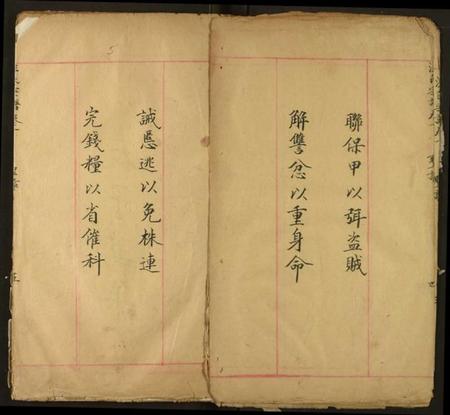 聯保甲以弭盜賊
解讐忿以重身命
誠慝逃以免株連
完錢糧以省催科